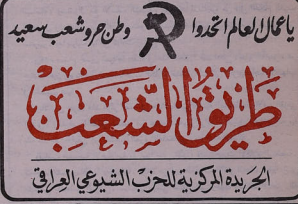 يا عمال العالم اتحدوا وطن حر وشعب سعيد
طريق الشَّعبْ
الجريدة المركزية للحزب الشيوعي العراقي